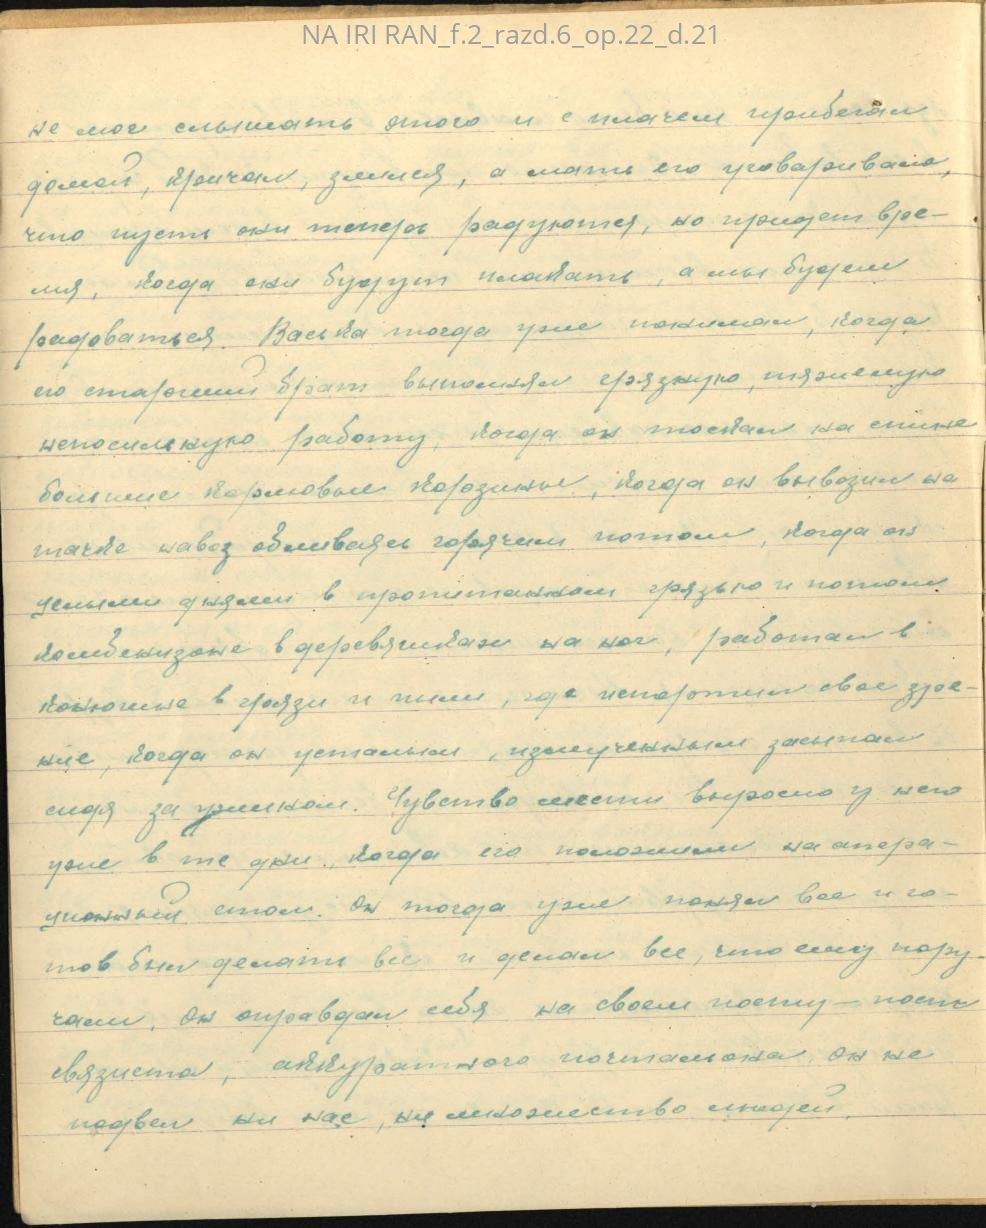 NA IRI RAN_f.2_razd.6_op.22_d.21
не мог слышать этого и с плачем прибегал
домой, кричал, злился, а мать его уговаривала,
что пусть они теперь радуются, но придет вре-
мя, когда они будут плакать, а мы будем
радоваться. Васька тогда уже понимал, когда
его старший брат выполнял грязную, тяжелую
непосильную работу, когда он таскал на спине
большие кормовые корзины, когда он вывозил на
тачке навоз обливаясь горячим потом, когда он
целыми днями в пропитанном грязью и потом
комбенизоне в деревяшках на ног, работал в
конюшне в грязи и пыли, где испортил свое зре-
ние, когда он усталым, измученным засыпал
сидя за ужином. Чувство мести выросло у него
уже в те дни, когда его положили на опера-
ционный стол. Он тогда уже понял все и го-
тов был делать все и делал все, что ему пору-
чали. Он оправдал себя на своем посту – посту
связиста, аккуратного почтальона. Он не
подвел ни нас, ни множество людей.